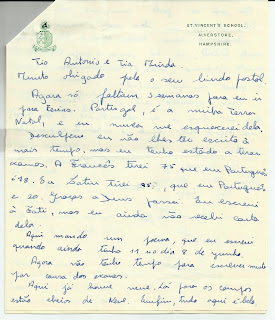 ST. VINCENT'S SCHOOL,
ALVERSTOKE,
HAMPSHIRE.
Tio Antonio e Tia
Muito obrigado pelo seu lindo postal
Agora só faltam 3 semanas para eu ir
para ferias. Portugal, é a minha Terra
Natal, e eu nunca me esquecerei dela.
Desculpem eu não lhes ter escrito á
mais tempo, mas eu tenho estado a tirar
exames. A Francês tirei 75 que em Português
é 18. Em Latim tirei que em Português
é 20. Graças a Deus passei. Eu escrevi
á mas eu ainda não recebi carta
dela.
Aqui mando um poema, que eu escrevi
quando ainda tinha 11 no dia 8 de Junho.
Agora não tenho tempo para escrever muito
por causa dos exames.
Aqui já houve neve. Lá fora os campos
estão cheios de Neve. Emfim, tudo aqui é belo